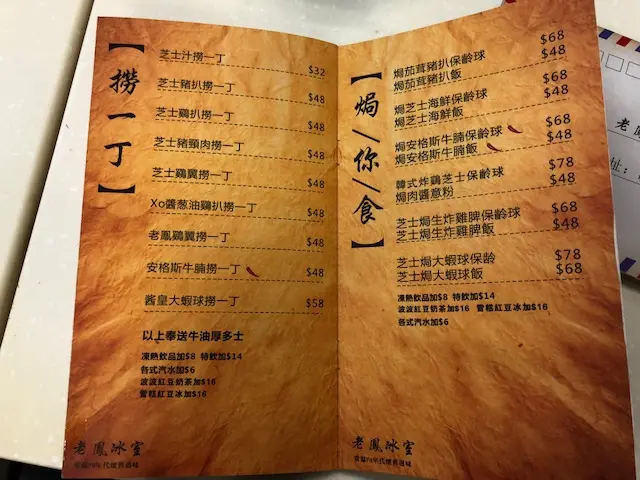 【撈一丁】
芝士汁撈一丁 $32
芝士豬扒撈一丁 $48
芝士鷄扒撈一丁 $48
芝士豬頸肉撈一丁 $48
芝士鷄翼撈一丁 $48
Xo醬葱油鷄扒撈一丁 $48
老鳳鷄翼撈一丁 $48
安格斯牛腩撈一丁 $48
醬皇大蝦球撈一丁 $58
以上奉送牛油厚多士
凍熱飲品加$8 特飲加$14
各式汽水加$6
波波紅豆奶茶加$16
雪糕紅豆冰加$16
老鳳冰室
【焗/你/食】
焗茄茸豬扒保齡球 $68
焗茄茸豬扒飯 $48
焗芝士海鮮保齡球 $68
焗芝士海鮮飯 $48
焗安格斯牛腩保齡球 $68
焗安格斯牛腩飯 $48
韓式炸鷄芝士保齡球 $78
焗肉醬意粉 $48
芝士焗生炸雞脾保齡球 $68
芝士焗生炸雞脾飯 $48
芝士焗大蝦球保齡 $78
芝士焗大蝦球飯 $68
凍熱飲品加$8 特飲加$14
波波紅豆奶茶加$16 雪糕紅豆冰加$16
各式汽水加$6
老鳳冰室
老鳳
址: